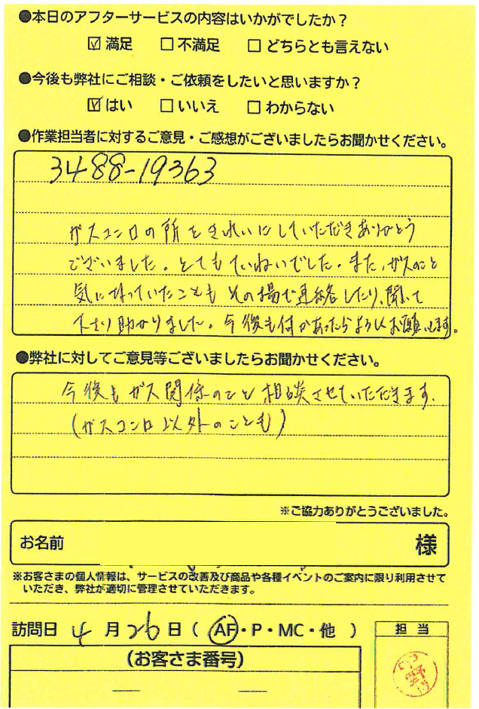 ●本日のアフターサービスの内容はいかがでしたか？
☑ 満足 □ 不満足 □ どちらとも言えない
●今後も弊社にご相談・ご依頼をしたいと思いますか？
☑ はい □ いいえ □ わからない
●作業担当者に対するご意見・ご感想がございましたらお聞かせください。
3488-19363
ガスコンロの所をきれいにしていただきありがとう
ございました。とてもていねいでした。また、ガスのこと
気になっていたこともその場で連絡したり、聞いて
下さり助かりました。今後も何かあったらよろしくお願いします。
●弊社に対してご意見等ございましたらお聞かせください。
今後もガス関係のこと相談させていただきます。
(ガスコンロ以外のことも)
※ご協力ありがとうございました。
お名前 様
※お客さまの個人情報は、サービスの改善及び商品や各種イベントのご案内に限り利用させて
いただき、弊社が適切に管理させていただきます。
訪問日 4 月 26 日 ( AF・P・MC・他 )
担当
(お客さま番号)